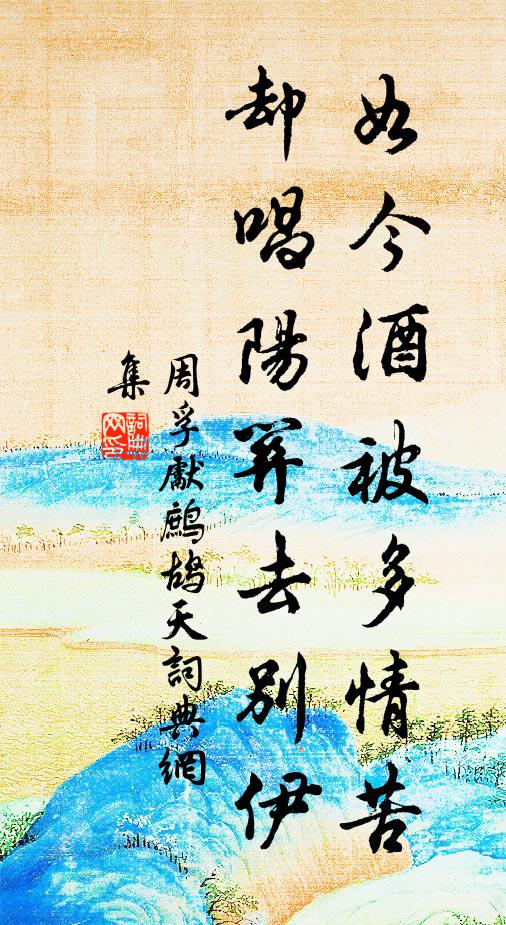 如今酒被多情苦
却唱陽關去別伊
周孚獻鷓鴣天詞典網
集
詞典網印